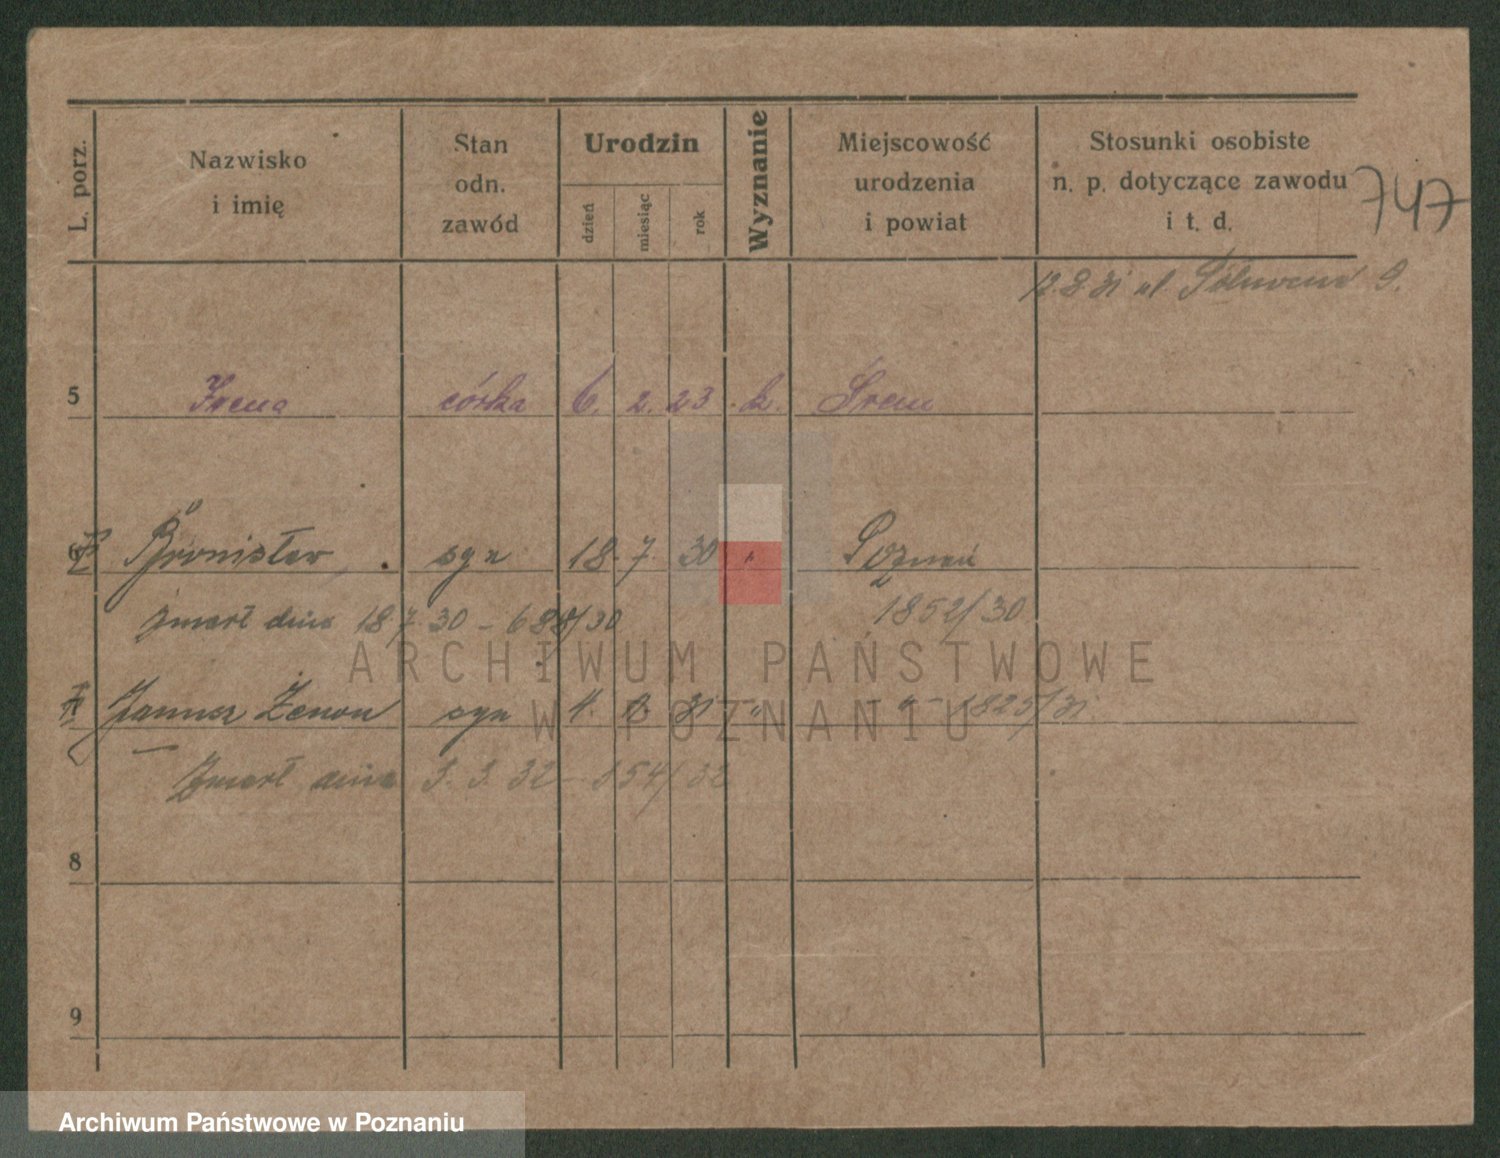 L. porz. Nazwisko i imię Stan odn. zawód Urodzin dzień miesiąc rok Wyznanie Miejscowość urodzenia i powiat Stosunki osobiste n. p. dotyczące zawodu i t. d.
747
12.8.31 ul. 9.
5 Irena córka 6. 2. 23 k. Śrem
6 Bronisław syn 18. 7. 30 " Poznań
zmarł dnia 18 7 30 – 688/30 1852/30
Janusz Zenon syn 4. 31 " – " – 1825/31
Zmarł dnia 3. 3. 32 – 154/32
8
9
ARCHIWUM PAŃSTWOWE
W POZNANIU
Archiwum Państwowe w Poznaniu